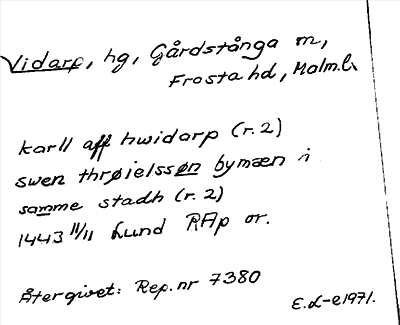 Vidarp, hg, Gårdstånga m,
Frosta hd, Malm.l.
karll aff hwidarp (r.2)
swen thrøielssøn bymæn i
samme stadh (r.2)
1443 11/11 Lund RAp or.
Återgivet: Rep.nr 7380
E.L-e 1971.